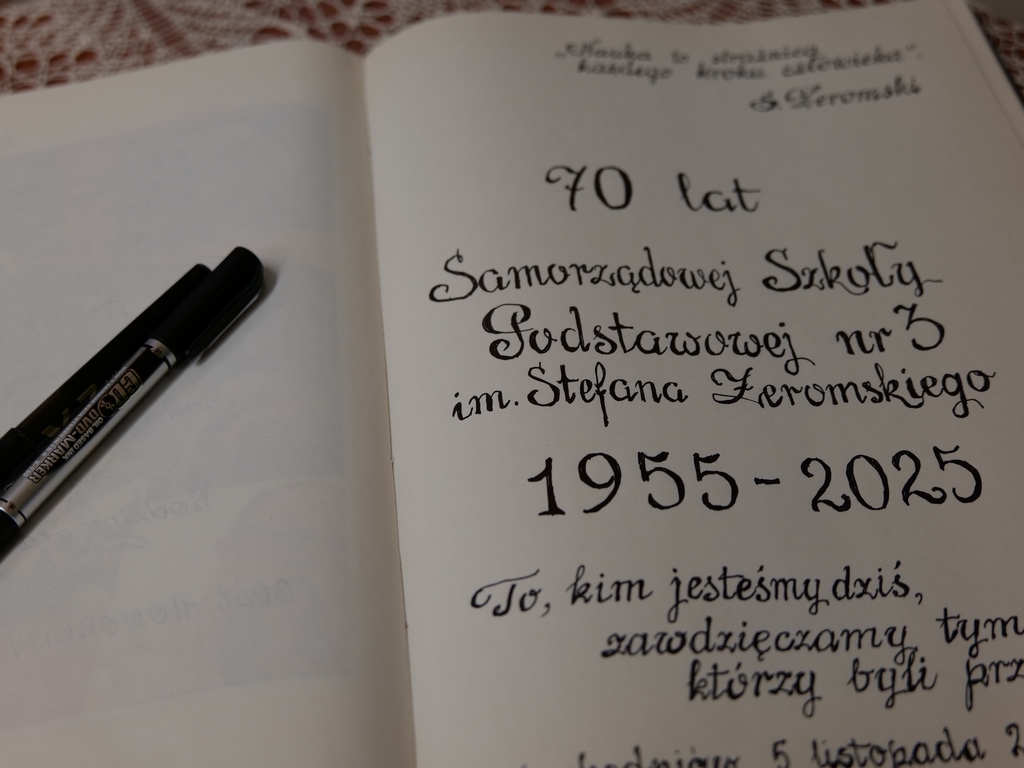 „Nauka to strażnica
każdego kroku człowieka".
S. Żeromski
70 lat
Samorządowej Szkoły
Podstawowej nr 3
im. Stefana Żeromskiego
1955-2025
To, kim jesteśmy dziś,
zawdzięczamy tym
którzy byli prz
5 listopada 2
DVD-MARKER